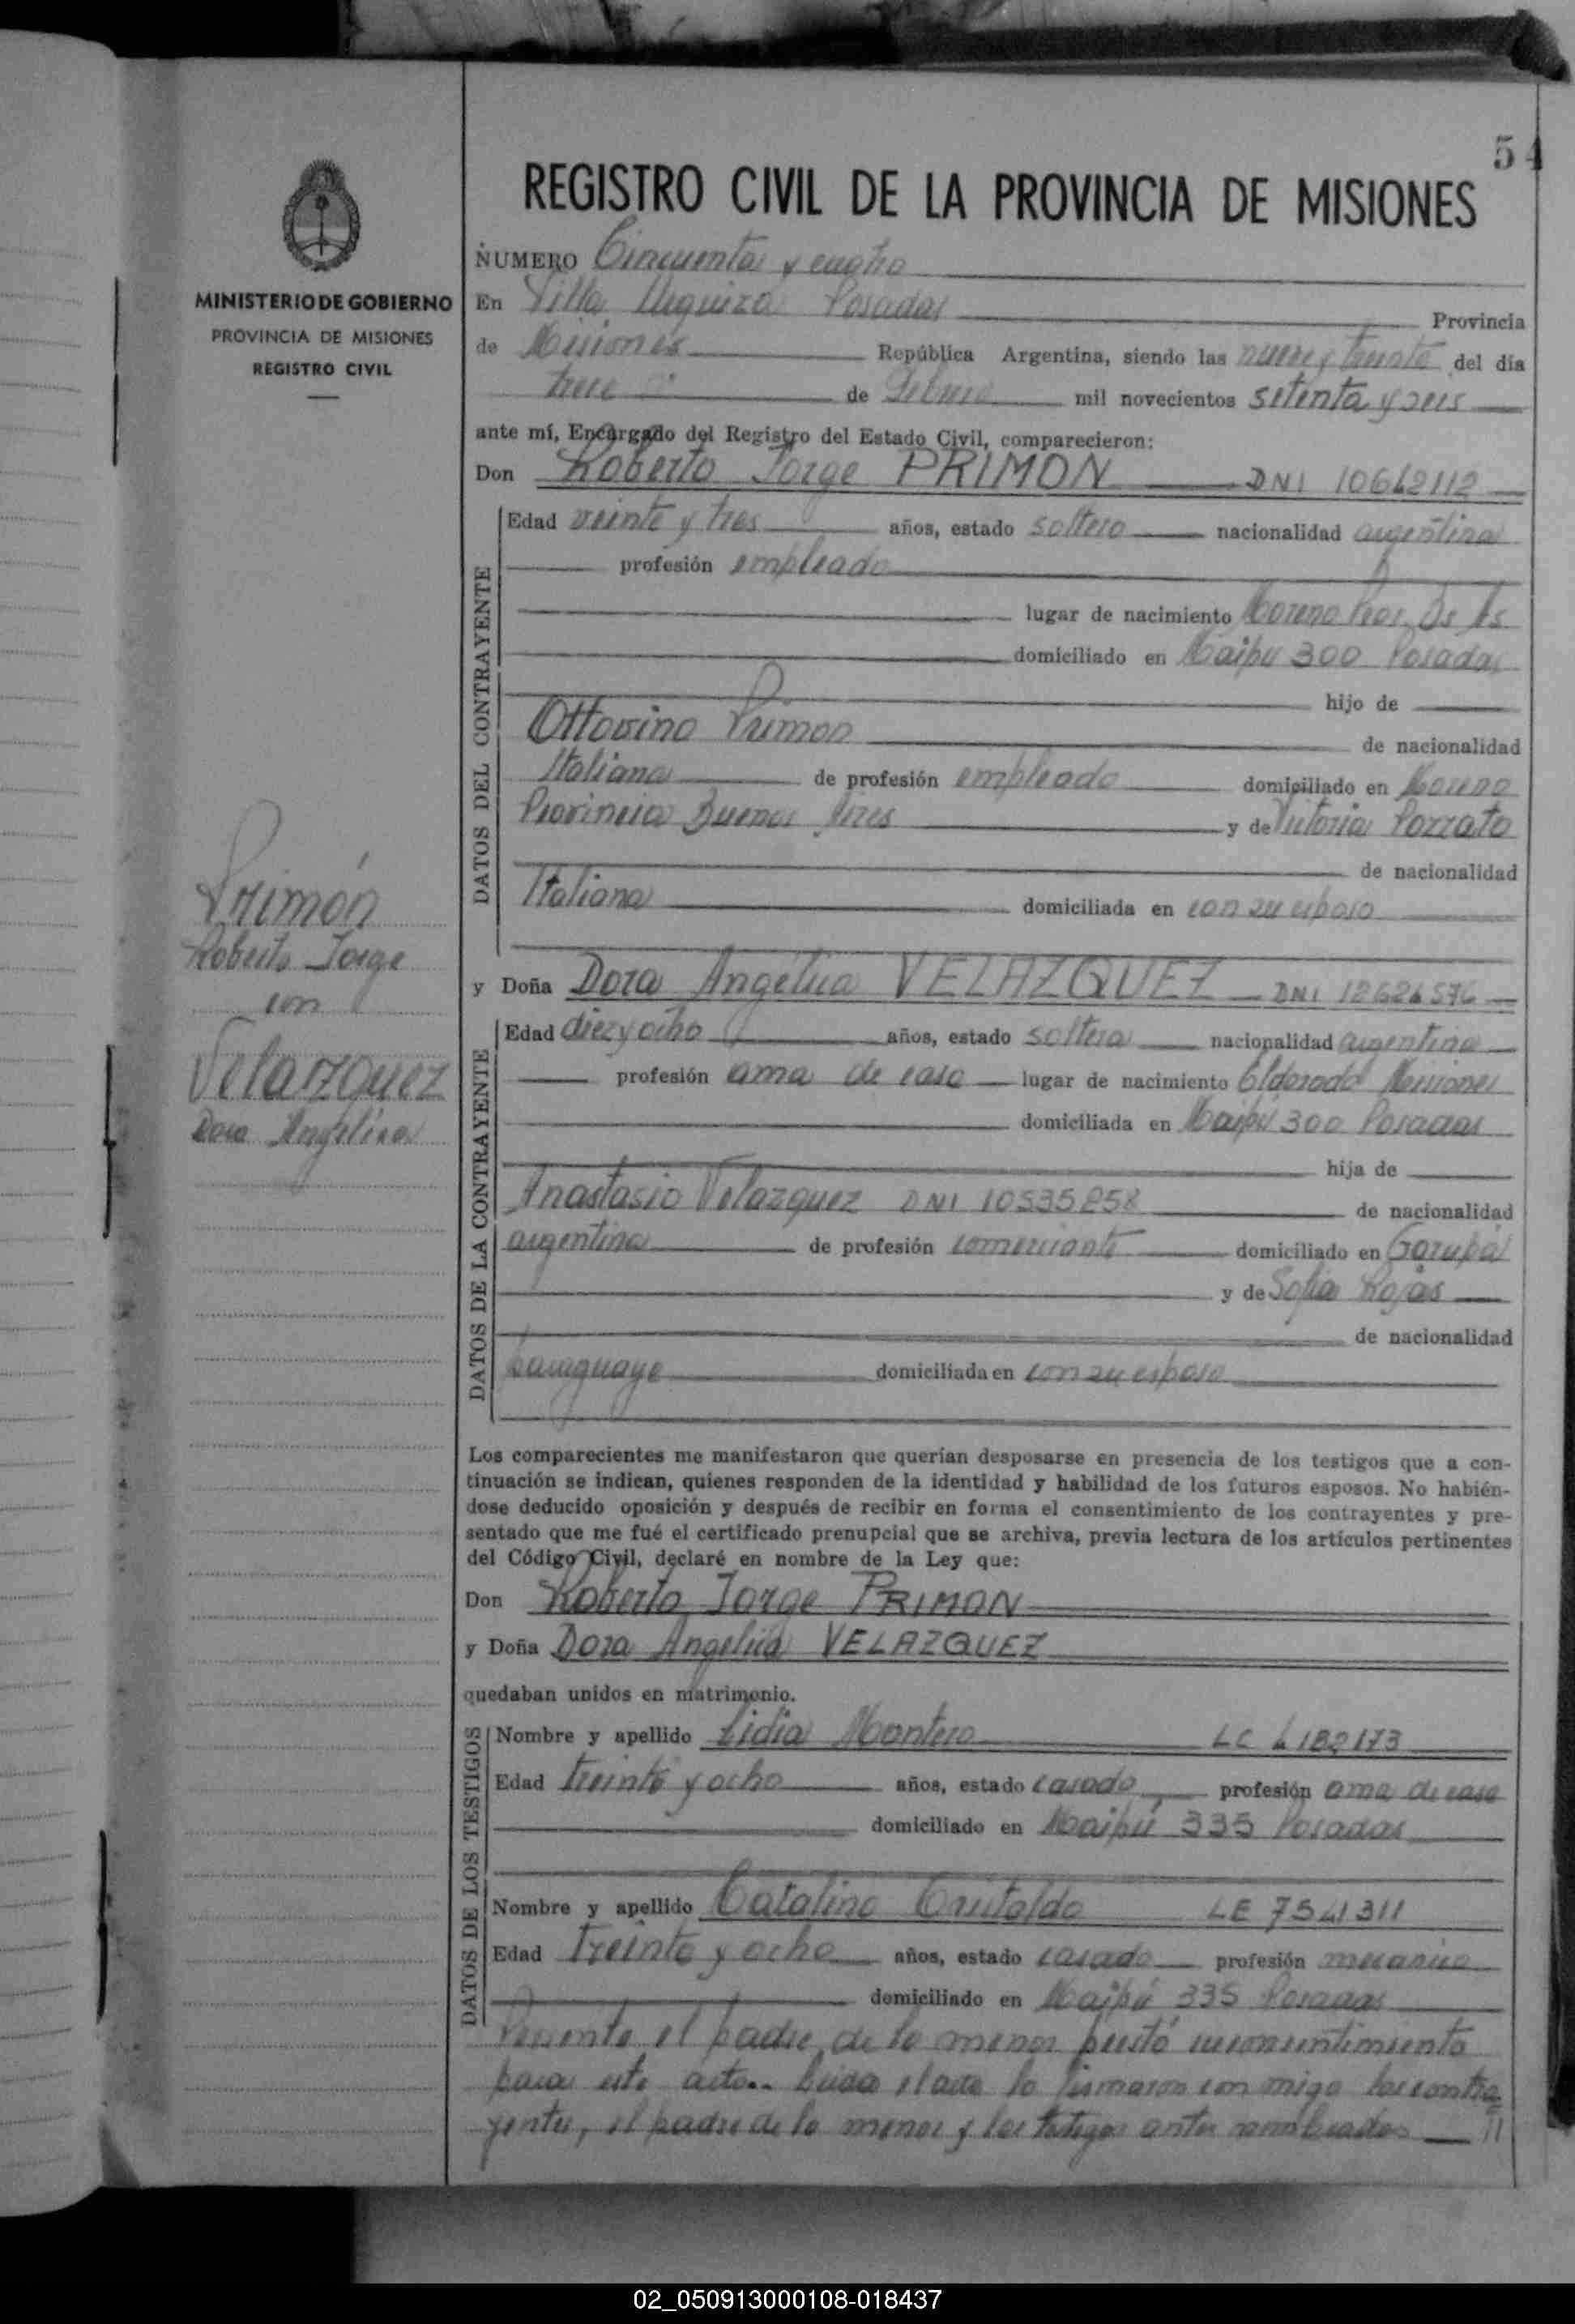 54
REGISTRO CIVIL DE LA PROVINCIA DE MISIONES
NUMERO Cincuenta y cuatro
MINISTERIO DE GOBIERNO
PROVINCIA DE MISIONES
REGISTRO CIVIL
En Villa Urquiza Posadas Provincia
de Misiones República Argentina, siendo las nueve y treinta del día
trece de Febrero mil novecientos setenta y seis
ante mí, Encargado del Registro del Estado Civil, comparecieron:
Don Roberto Jorge PRIMON DNI 10642112
DATOS DEL CONTRAYENTE
Edad veinte y tres años, estado soltero nacionalidad argentina
profesión empleado
lugar de nacimiento Moreno Bs As
domiciliado en Maipú 300 Posadas
hijo de
Ottovino Primon de nacionalidad
Italiana de profesión empleado domiciliado en Moreno
Provincia Buenos Aires y de Victoria Pozzato
de nacionalidad
Italiana domiciliada en con su esposo
Primón
Roberto Jorge
con
Velazquez
Dora Angélica
y Doña Dora Angélica VELAZQUEZ DNI 12626576
DATOS DE LA CONTRAYENTE
Edad diez y ocho años, estado soltera nacionalidad argentina
profesión ama de casa lugar de nacimiento Eldorado Misiones
domiciliada en Maipú 300 Posadas
hija de
Anastasio Velazquez DNI 10535858 de nacionalidad
argentina de profesión comerciante domiciliado en Garupá
y de Sofia Rojas
de nacionalidad
paraguaya domiciliada en con su esposo
Los comparecientes me manifestaron que querían desposarse en presencia de los testigos que a con-
tinuación se indican, quienes responden de la identidad y habilidad de los futuros esposos. No habién-
dose deducido oposición y después de recibir en forma el consentimiento de los contrayentes y pre-
sentado que me fué el certificado prenupcial que se archiva, previa lectura de los artículos pertinentes
del Código Civil, declaré en nombre de la Ley que:
Don Roberto Jorge PRIMON
y Doña Dora Angélica VELAZQUEZ
quedaban unidos en matrimonio.
DATOS DE LOS TESTIGOS
Nombre y apellido Lidia Montero LC 4182173
Edad treinta y ocho años, estado casada profesión ama de casa
domiciliado en Maipú 335 Posadas
Nombre y apellido Catalino Cristaldo LE 7541311
Edad Treinta y ocho años, estado casado profesión mecanico
domiciliado en Maipú 335 Posadas
Presente el padre de la menor prestó su consentimiento
para este acto.. Leida el acta la firmaron con migo los contra
yentes, el padre de la menor y los testigos antes nombrados //
02_050913000108-018437